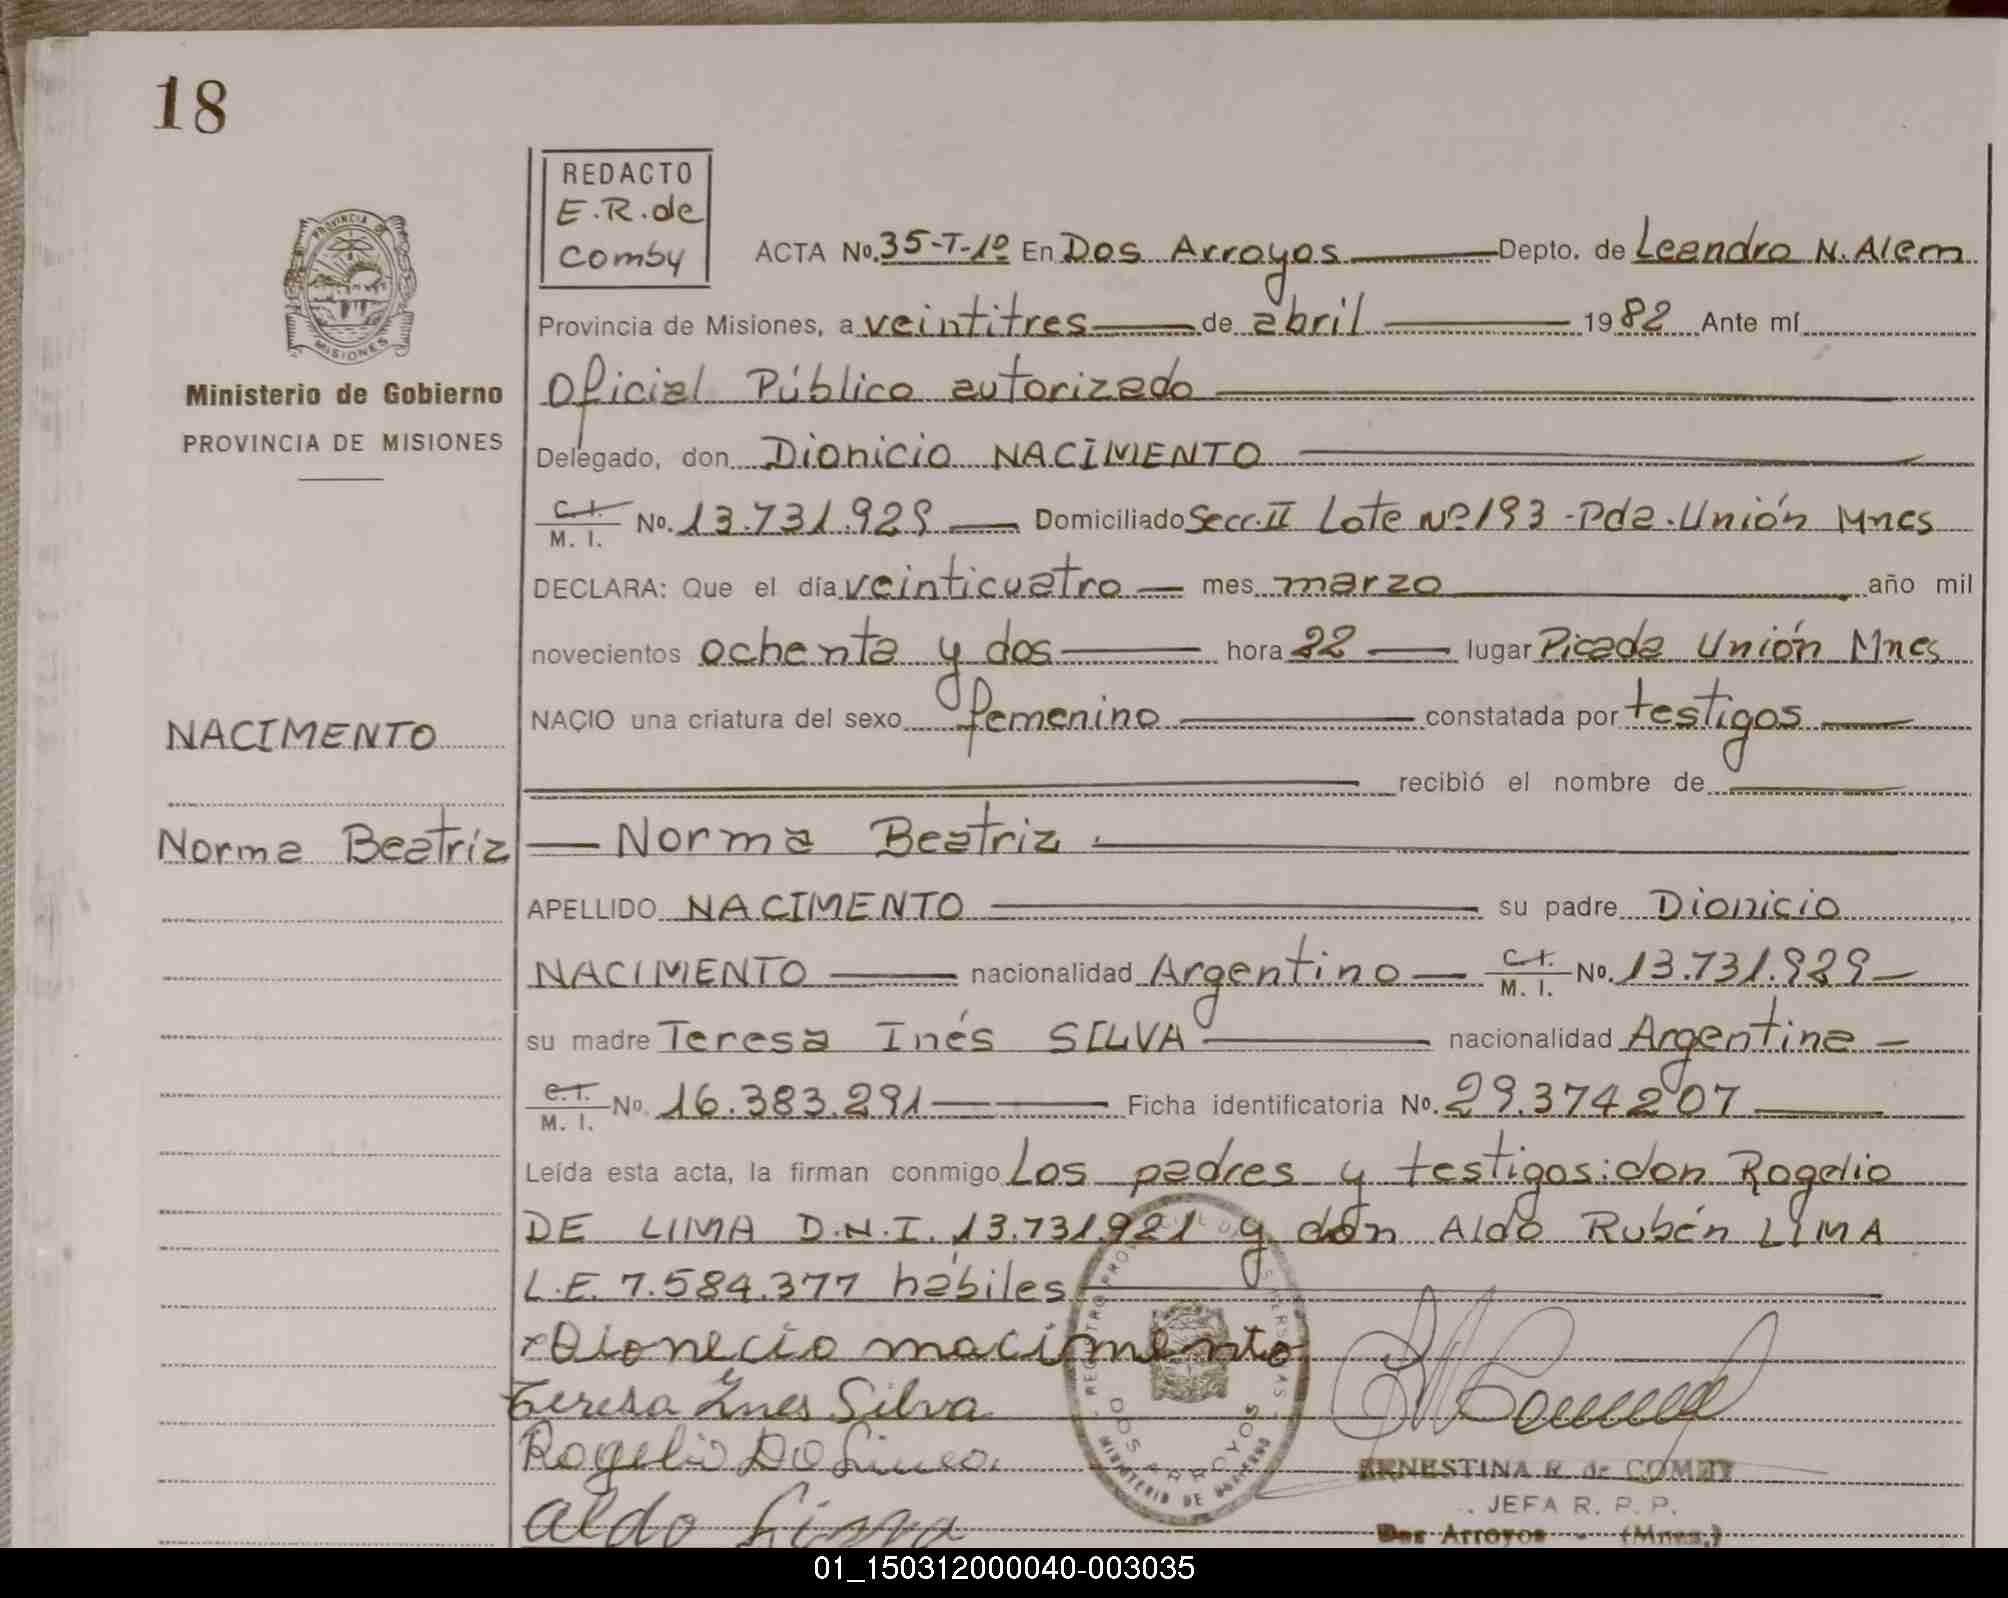 18
REDACTO
E.R. de
Comby
PROVINCIA DE
MISIONES
Ministerio de Gobierno
PROVINCIA DE MISIONES
ACTA No. 35-T-1º En Dos Arroyos Depto. de Leandro N. Alem
Provincia de Misiones, a veintitres de abril 1982 Ante mí
Oficial Público autorizado
Delegado, don Dionicio NACIMENTO
C.I. M. I. No. 13.731.929 Domiciliado Secc. II Lote Nº 193 - Pda. Unión Mnes
DECLARA: Que el día veinticuatro mes marzo año mil
novecientos ochenta y dos hora 22 lugar Picada Unión Mnes
NACIO una criatura del sexo femenino constatada por testigos
recibió el nombre de
Norma Beatriz
NACIMENTO
Norma Beatríz
APELLIDO NACIMENTO su padre Dionicio
NACIMENTO nacionalidad Argentino C.I. M. I. No. 13.731.929
su madre Teresa Inés SILVA nacionalidad Argentina
C.I. M. I. No. 16.383.291 Ficha identificatoria No. 29.374207
Leída esta acta, la firman conmigo Los padres y testigos: don Rogelio
DE LIMA D.N.I. 13.731.921 y don Aldo Rubén LIMA
L.E. 7.584.377 hábiles
x Dionecio nacimento
Teresa Ines Silva
Rogelio De Lima
aldo Lima
DOS ARROYOS
MINISTERIO DE GOBIERNO
ERNESTINA R. de COMBY
JEFA R. P. P.
Dos Arroyos - (Mnes.)
01_150312000040-003035